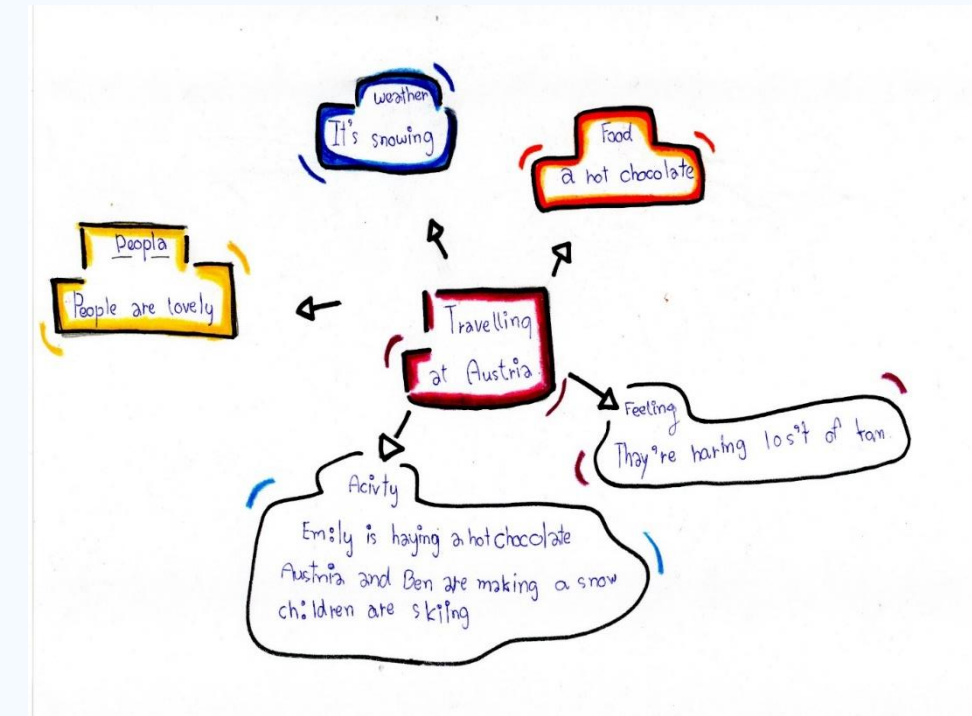 weather
It's snowing
Food
a hot chocolate
Peopla
People are lovely
Travelling
at Austria
Feeling
Thay're haring los't of tan.
Acivty
Emily is haying a hot chocolate
Austria and Ben are making a snow
children are skiing